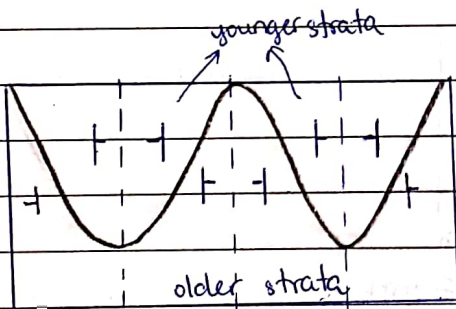 younger strata
older strata